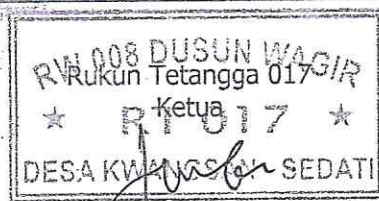 RW 008 DUSUN WAGIR
Rukun Tetangga 017
Ketua
★ RT 017 ★
DESA KWANGSAN SEDATI